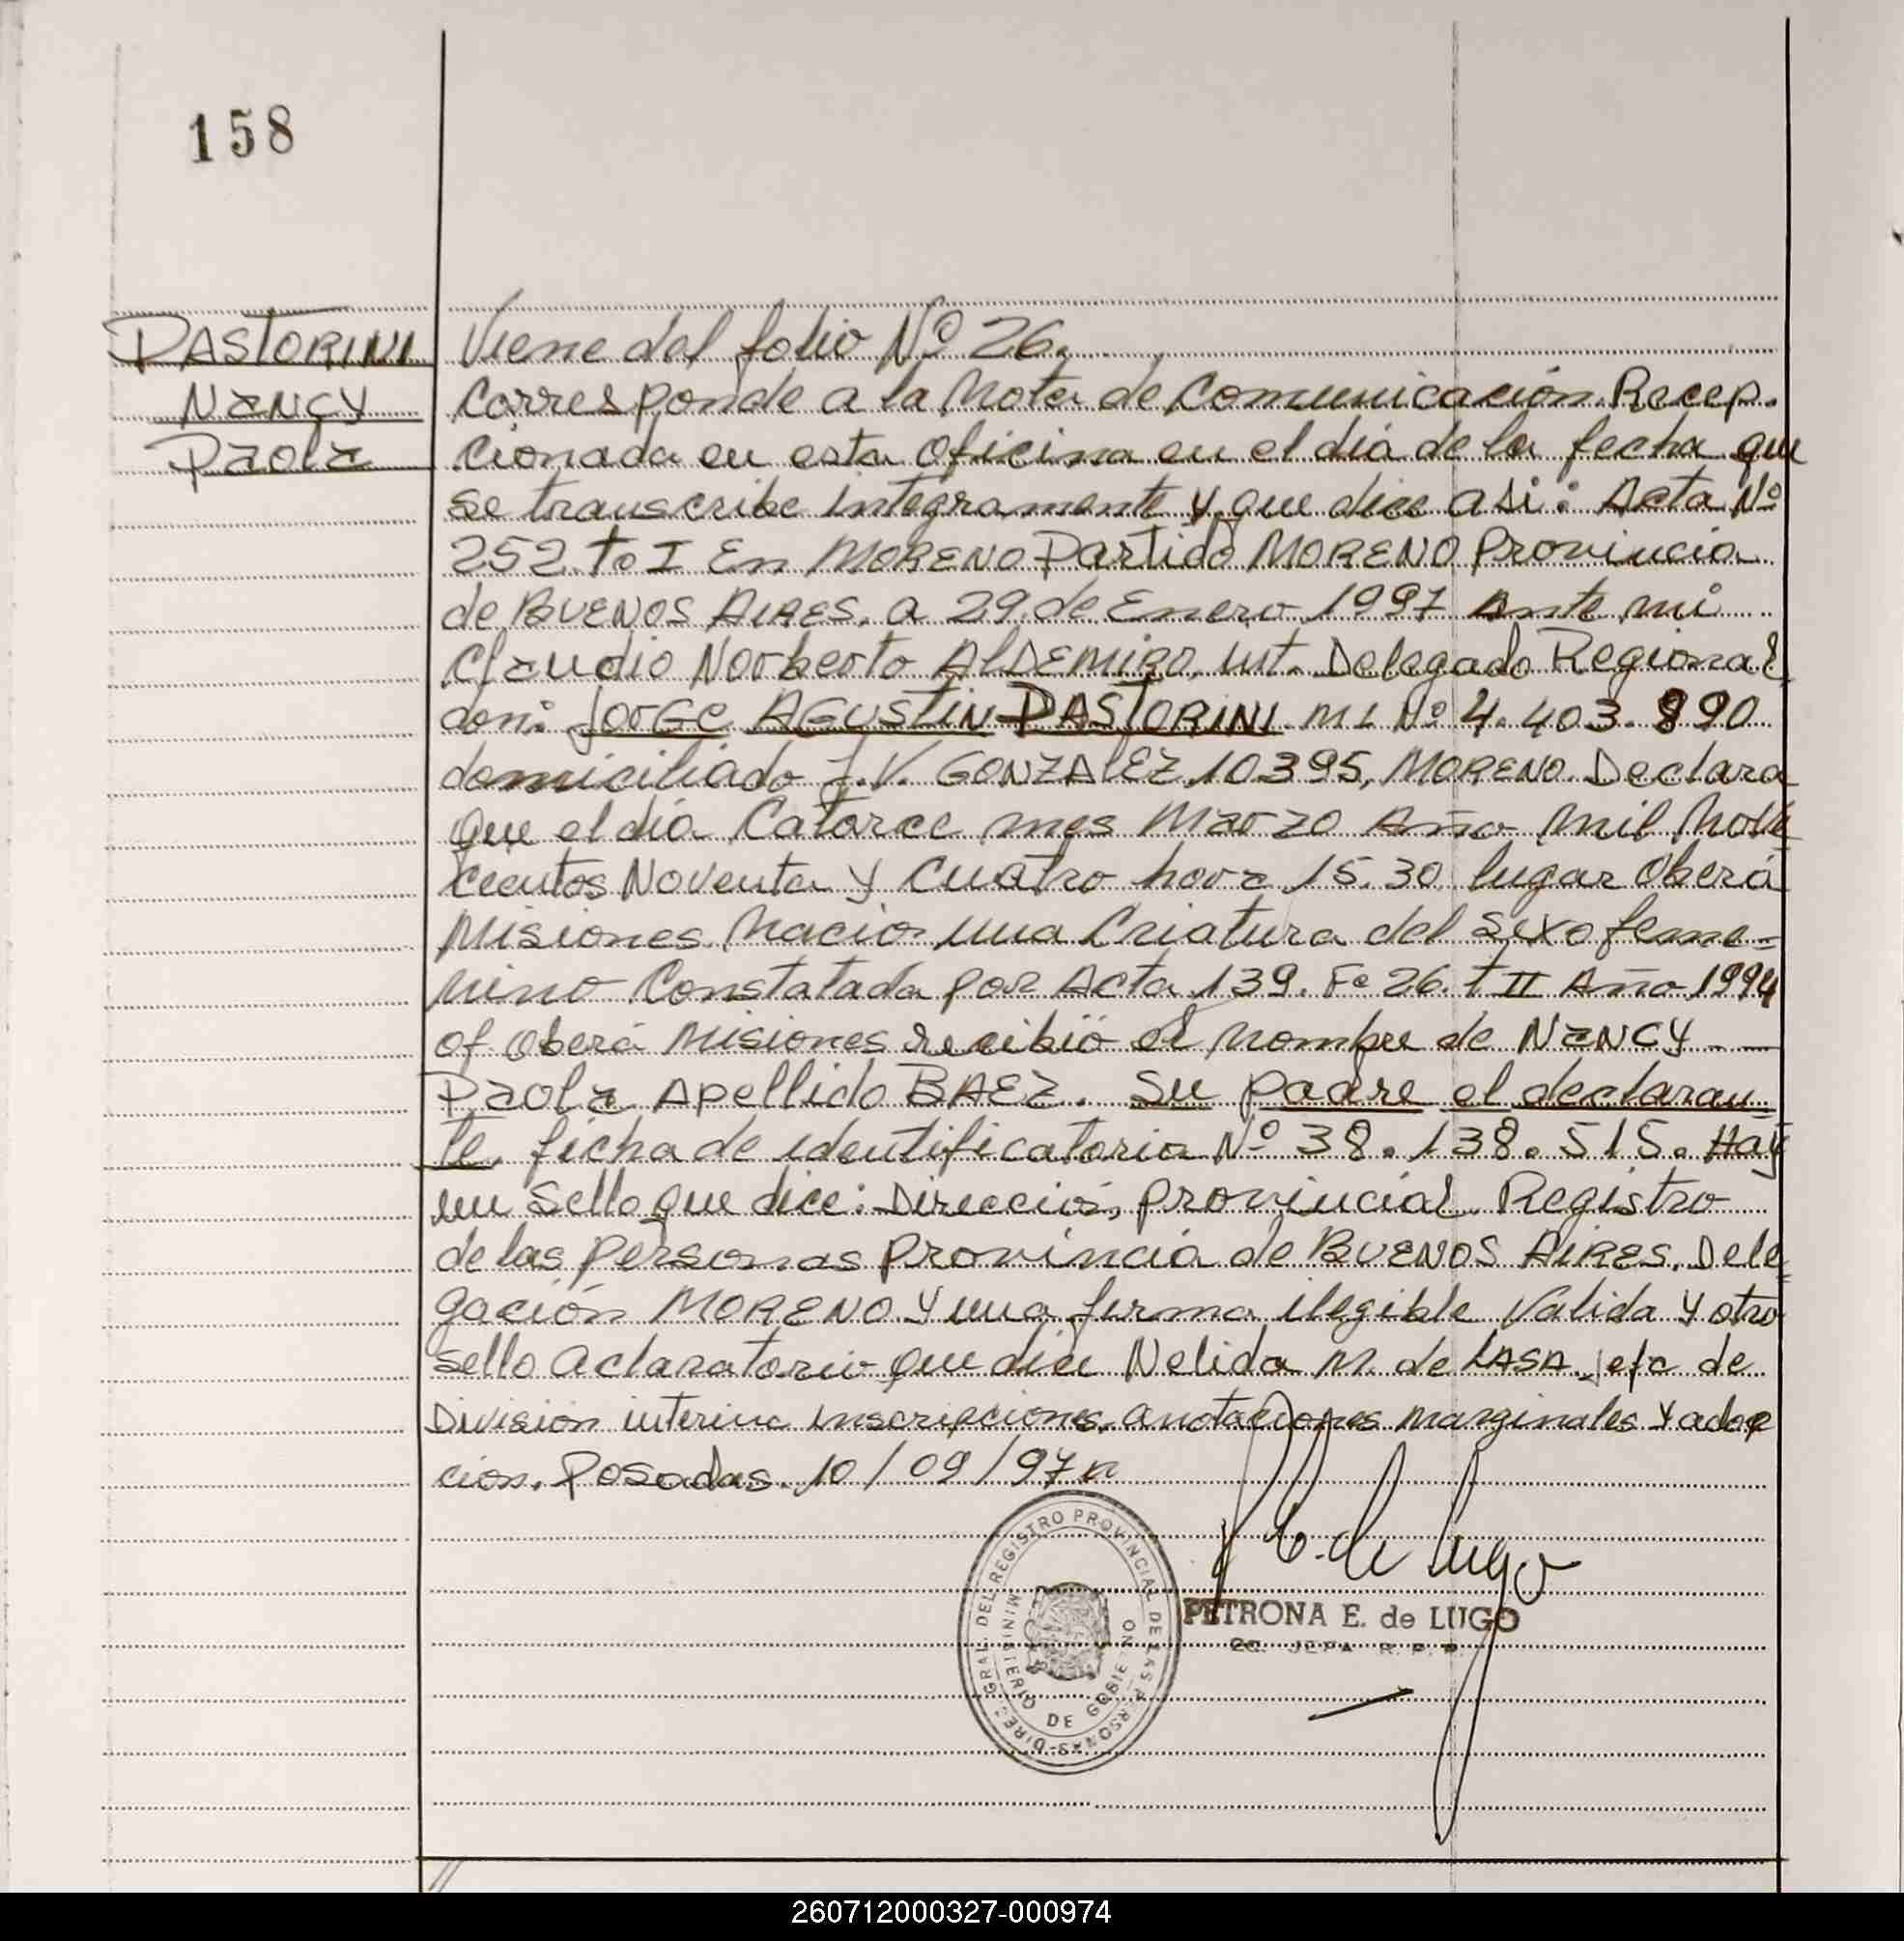 158
PASTORINI
Nancy
Paola
Viene del folio Nº 26.
Corresponde a la Nota de Comunicación Recep.
cionada en esta Oficina en el día de la fecha que
se transcribe integramente y que dice asi: Acta Nº
252 to I En MORENO Partido MORENO Provincia
de BUENOS AIRES. a 29 de Enero 1997 Ante mi
Claudio Norberto AlDEMIRO int. Delegado Regional
don: Jorge AGUSTIN PASTORINI MI Nº 4.403.890
domiciliado J.V. GONZALEZ 10395, MORENO Declara
que el día Catorce mes Marzo Año mil Nove
cientos Noventa y Cuatro hora 15.30 lugar Oberá
Misiones Nació una Criatura del sexo feme-
nino Constatada por Acta 139. Fº 26. t II Año 1994
of Oberá Misiones recibió el nombre de Nancy - —
Paola Apellido BAEZ. Su padre el declaran
te. ficha de identificatoria Nº 38.138.515. Hay
un Sello que dice: Dirección, Provincial Registro
de las Personas Provincia de BUENOS AIRES. Dele-
gación MORENO y una firma ilegible Valida y otro
sello aclaratorio que dice Nelida M. de LASA jefe de
División interina inscripciones, anotaciones marginales y adop
cion. Posadas. 10/09/97
E. de Lugo
DIREC. GRAL. DEL REGISTRO PROVINCIAL DE LAS PERSONAS
MINISTERIO DE GOBIERNO
PETRONA E. de LUGO
JEFA R. P. P.
260712000327-000974